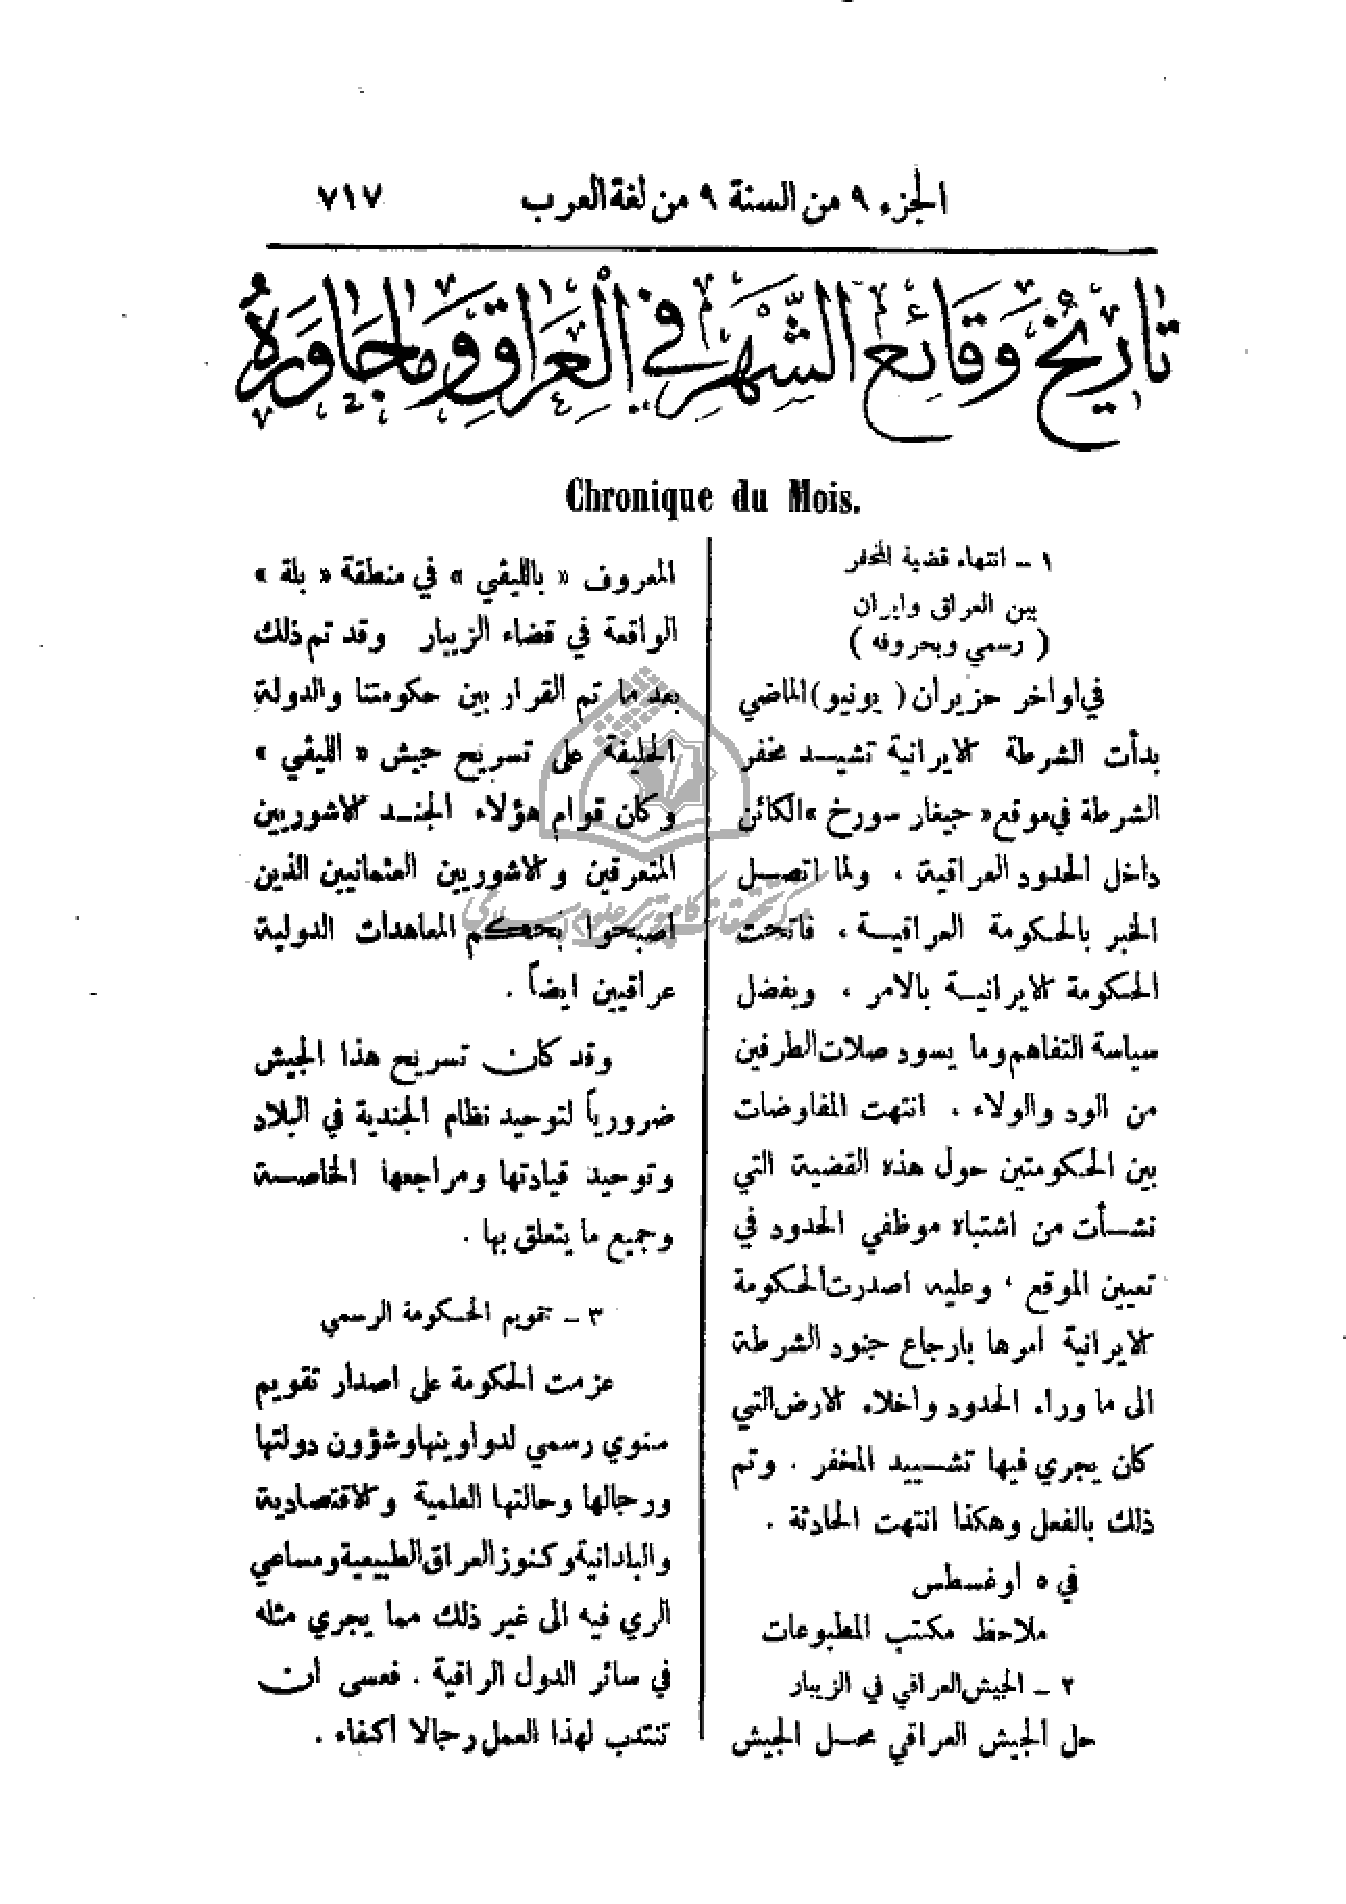 الجزء ٩ من السنة ٩ من لغة العرب
٧١٧
تاريخ وقائع الشهر في العراق وما جاوره
Chronique du Mois.
١ ــ انتهاء قضية المخفر
بين العراق وايران
( رسمي وبحروفه )
في اواخر حزيران ( يونيو ) الماضي
بدأت الشرطة الايرانية تشيــد مخفر
الشرطة في موقع « جيغار سورخ » الكائن
داخل الحدود العراقية ، ولما اتصــل
الخبر بالحكومة العراقيــة ، فاتحت
الحكومة الايرانيــة بالامر ، وبفضل
سياسة التفاهم وما يسود صلات الطرفين
من الود والولاء ، انتهت المفاوضات
بين الحكومتين حول هذه القضية التي
نشــأت من اشتباه موظفي الحدود في
تعيين الموقع ، وعليه اصدرت الحكومة
الايرانية امرها بارجاع جنود الشرطة
الى ما وراء الحدود واخلاء الارض التي
كان يجري فيها تشــييد المخفر . وتم
ذلك بالفعل وهكذا انتهت الحادثة .
في ٥ اوغسطس
ملاحظ مكتب المطبوعات
٢ ــ الجيش العراقي في الزيبار
حل الجيش العراقي محــل الجيش
المعروف « بالليڤي » في منطقة « بلة »
الواقعة في قضاء الزيبار وقد تم ذلك
بعد ما تم القرار بين حكومتنا والدولة
الحليفة على تسريح جيش « الليڤي »
وكان قوام هؤلاء الجنــد الاشوريين
المتعرقين والاشوريين العثمانيين الذين
اصبحوا بحكم المعاهدات الدولية
عراقيين ايضاً .
وقد كان تسريح هذا الجيش
ضرورياً لتوحيد نظام الجندية في البلاد
وتوحيد قيادتها ومراجعها الخاصــة
وجميع ما يتعلق بها .
٣ ــ تقويم الحكومة الرسمي
عزمت الحكومة على اصدار تقويم
سنوي رسمي لدواوينها وشؤون دولتها
ورجالها وحالتها العلمية والاقتصادية
والبلدانية وكنوز العراق الطبيعية ومساعي
الري فيه الى غير ذلك مما يجري مثله
في سائر الدول الراقية . فعسى ان
تنتدب لهذا العمل رجالا اكفاء .
مركز تحقيقات كامپيوتري علوم اسلامي